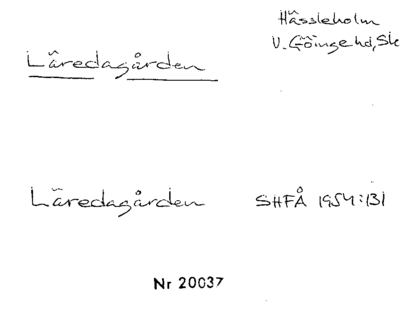 Hässleholm
V. Göinge hd, Sk
Läredagården
Läredagården SHFÅ 1954:131
Nr 20037